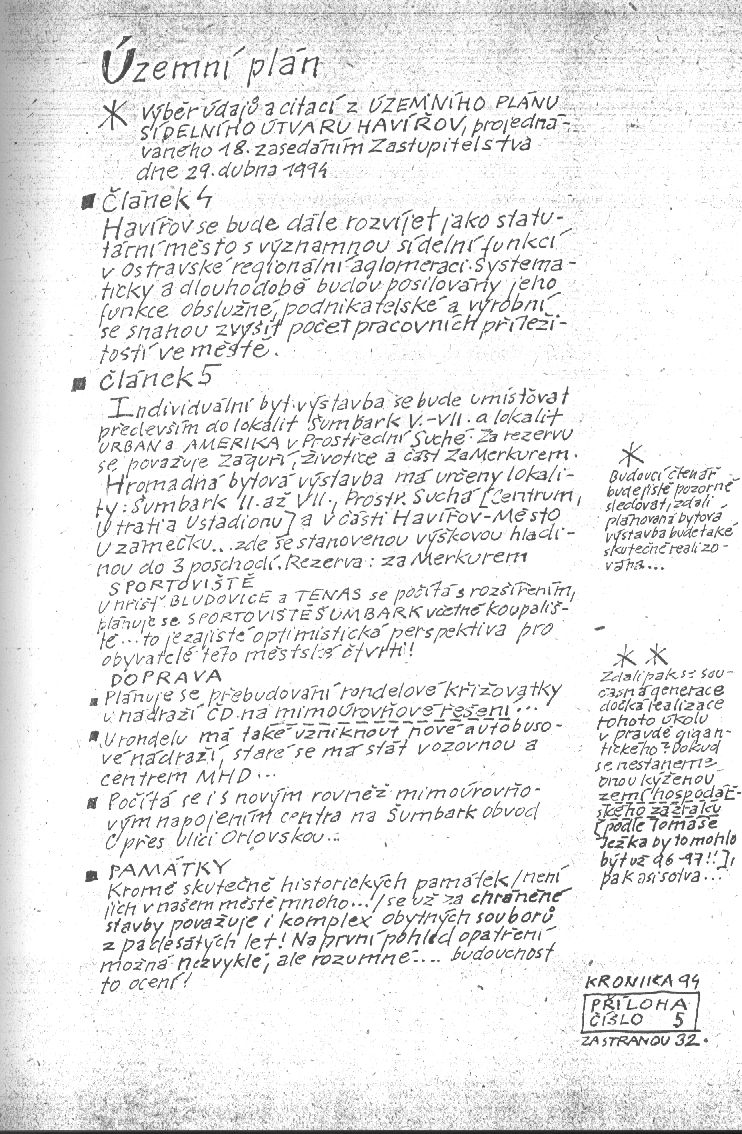 Územní plán
* Výběr údajů a citací z ÚZEMNÍHO PLÁNU
SÍDELNÍHO ÚTVARU HAVÍŘOV, projedná-
vaného 18. zasedáním Zastupitelstva
dne 29. dubna 1994
■ Článek 4
Havířov se bude dále rozvíjet jako statu-
tární město s významnou sídelní funkcí
v Ostravské regionální aglomeraci. Systema-
ticky a dlouhodobě budou posilovány jeho
funkce obslužné, podnikatelské a výrobní
se snahou zvýšit počet pracovních příleži-
tostí ve městě.
■ Článek 5
Individuální byt. výstavba se bude umísťovat
především do lokalit Šumbark V.-VII. a lokalit
URBAN a AMERIKA v Prostřední Suché. Za rezervu
se považuje Zaguří, Životice a část Za Merkurem.
Hromadná bytová výstavba má určeny lokali-
ty: Šumbark II. až VII., Prostř. Suchá [Centrum,
U trati a U stadionu] a v části Havířov-Město
U zámečku... zde se stanovenou výškovou hladi-
nou do 3 poschodí. Rezerva: za Merkurem
SPORTOVIŠTĚ
U hřišť BLUDOVICE a TENAS se počítá s rozšířením,
plánuje se SPORTOVIŠTĚ ŠUMBARK včetně koupališ-
tě... to je zajisté optimistická perspektiva pro
obyvatele této městské čtvrti!
DOPRAVA
■ Plánuje se přebudování rondelové křižovatky
u nádraží ČD na mimoúrovňové řešení...
■ U rondelu má také vzniknout nové autobuso-
vé nádraží, staré se má stát vozovnou a
centrem MHD...
■ Počítá se i s novým rovněž mimoúrovňo-
vým napojením centra na Šumbark obvod
C přes ulici Orlovskou...
■ PAMÁTKY
Kromě skutečně historických památek /není
jich v našem městě mnoho.../ se už za chráněné
stavby považuje i komplex obytných souborů
z padesátých let! Na první pohled opatření
možná nezvyklé, ale rozumné.... budoucnost
to ocení!
*
Budoucí čtenář
bude jistě pozorně
sledovat, zdali
plánovaná bytová
výstavba bude také
skutečně realizo-
vána...
* *
Zdalipak se sou-
časná generace
dočká realizace
tohoto úkolu
v pravdě gigan-
tického? Pokud
se nestaneme
onou kýženou
zemí hospodář-
ského zázraku
[podle Tomáše
Ježka by to mohlo
být už 96-97!!],
pak asi sotva...
KRONIKA 94
PŘÍLOHA
ČÍSLO 5
ZA STRANOU 32.